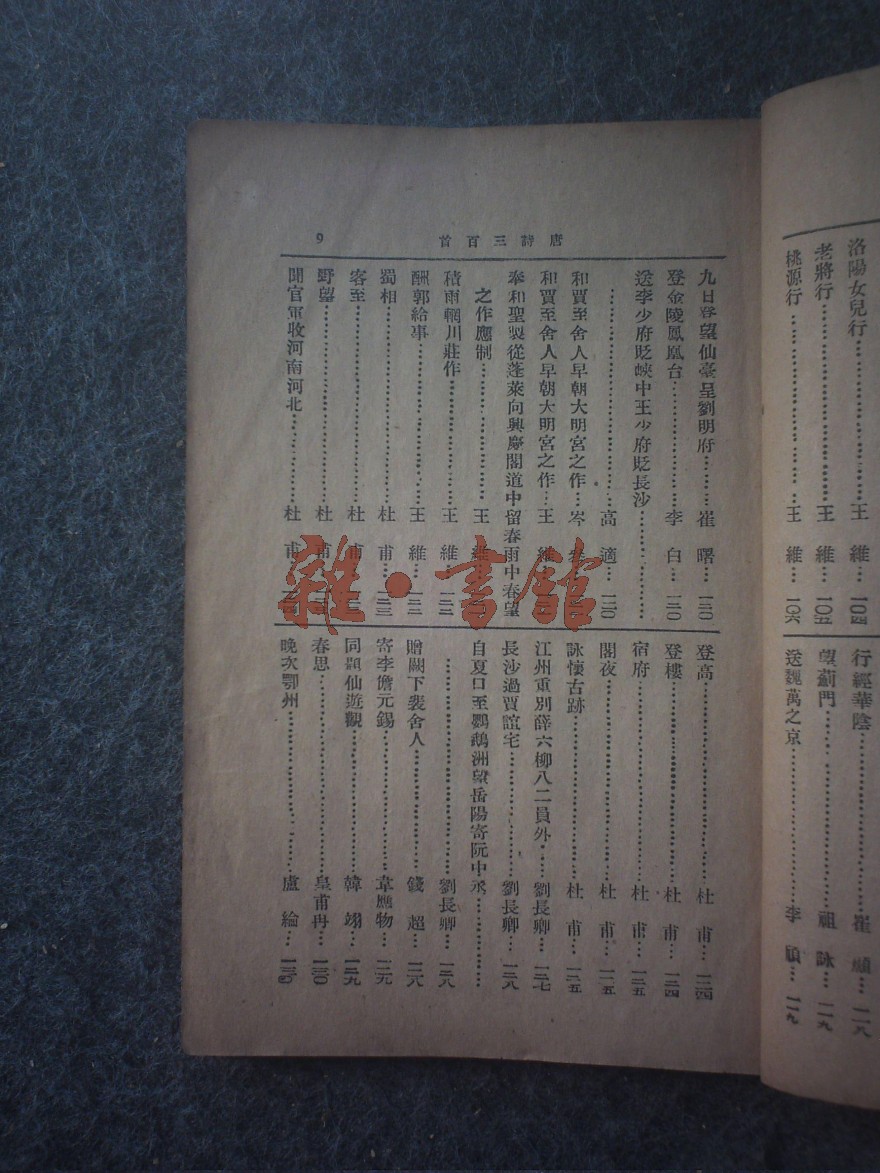 洛陽女兒行……王維…一〇四
老將行……王維…一〇五
桃源行……王維…一〇六
行經華陰……崔顥…一一八
望薊門……祖詠…一一九
送魏萬之京……李頎…一一九
唐詩三百首 9
九日登望仙臺呈劉明府……崔曙…一二〇
登金陵鳳凰台……李白…一二〇
送李少府貶峽中王少府貶長沙……
……高適…一二〇
和賈至舍人早朝大明宮之作…岑參
和賈至舍人早朝大明宮之作…王維
奉和聖製從蓬萊向興慶閣道中留春雨中春望
之作應制……王維
積雨輞川莊作……王維…一二二
酬郭給事……王維…一二二
蜀相……杜甫…一二三
客至……杜甫
野望……杜甫
聞官軍收河南河北……杜甫
登高……杜甫…一二四
登樓……杜甫…一二四
宿府……杜甫…一二五
閣夜……杜甫…一二五
詠懷古跡……杜甫…一二五
江州重別薛六柳八二員外……劉長卿…一二七
長沙過賈誼宅……劉長卿…一二八
自夏口至鸚鵡洲望岳陽寄阮中丞……
……劉長卿…一二八
贈闕下裴舍人……錢起…一二八
寄李儋元錫……韋應物…一二九
同題仙遊觀……韓翃…一二九
春思……皇甫冉…一三〇
晚次鄂州……盧綸…一三〇
雜·書館